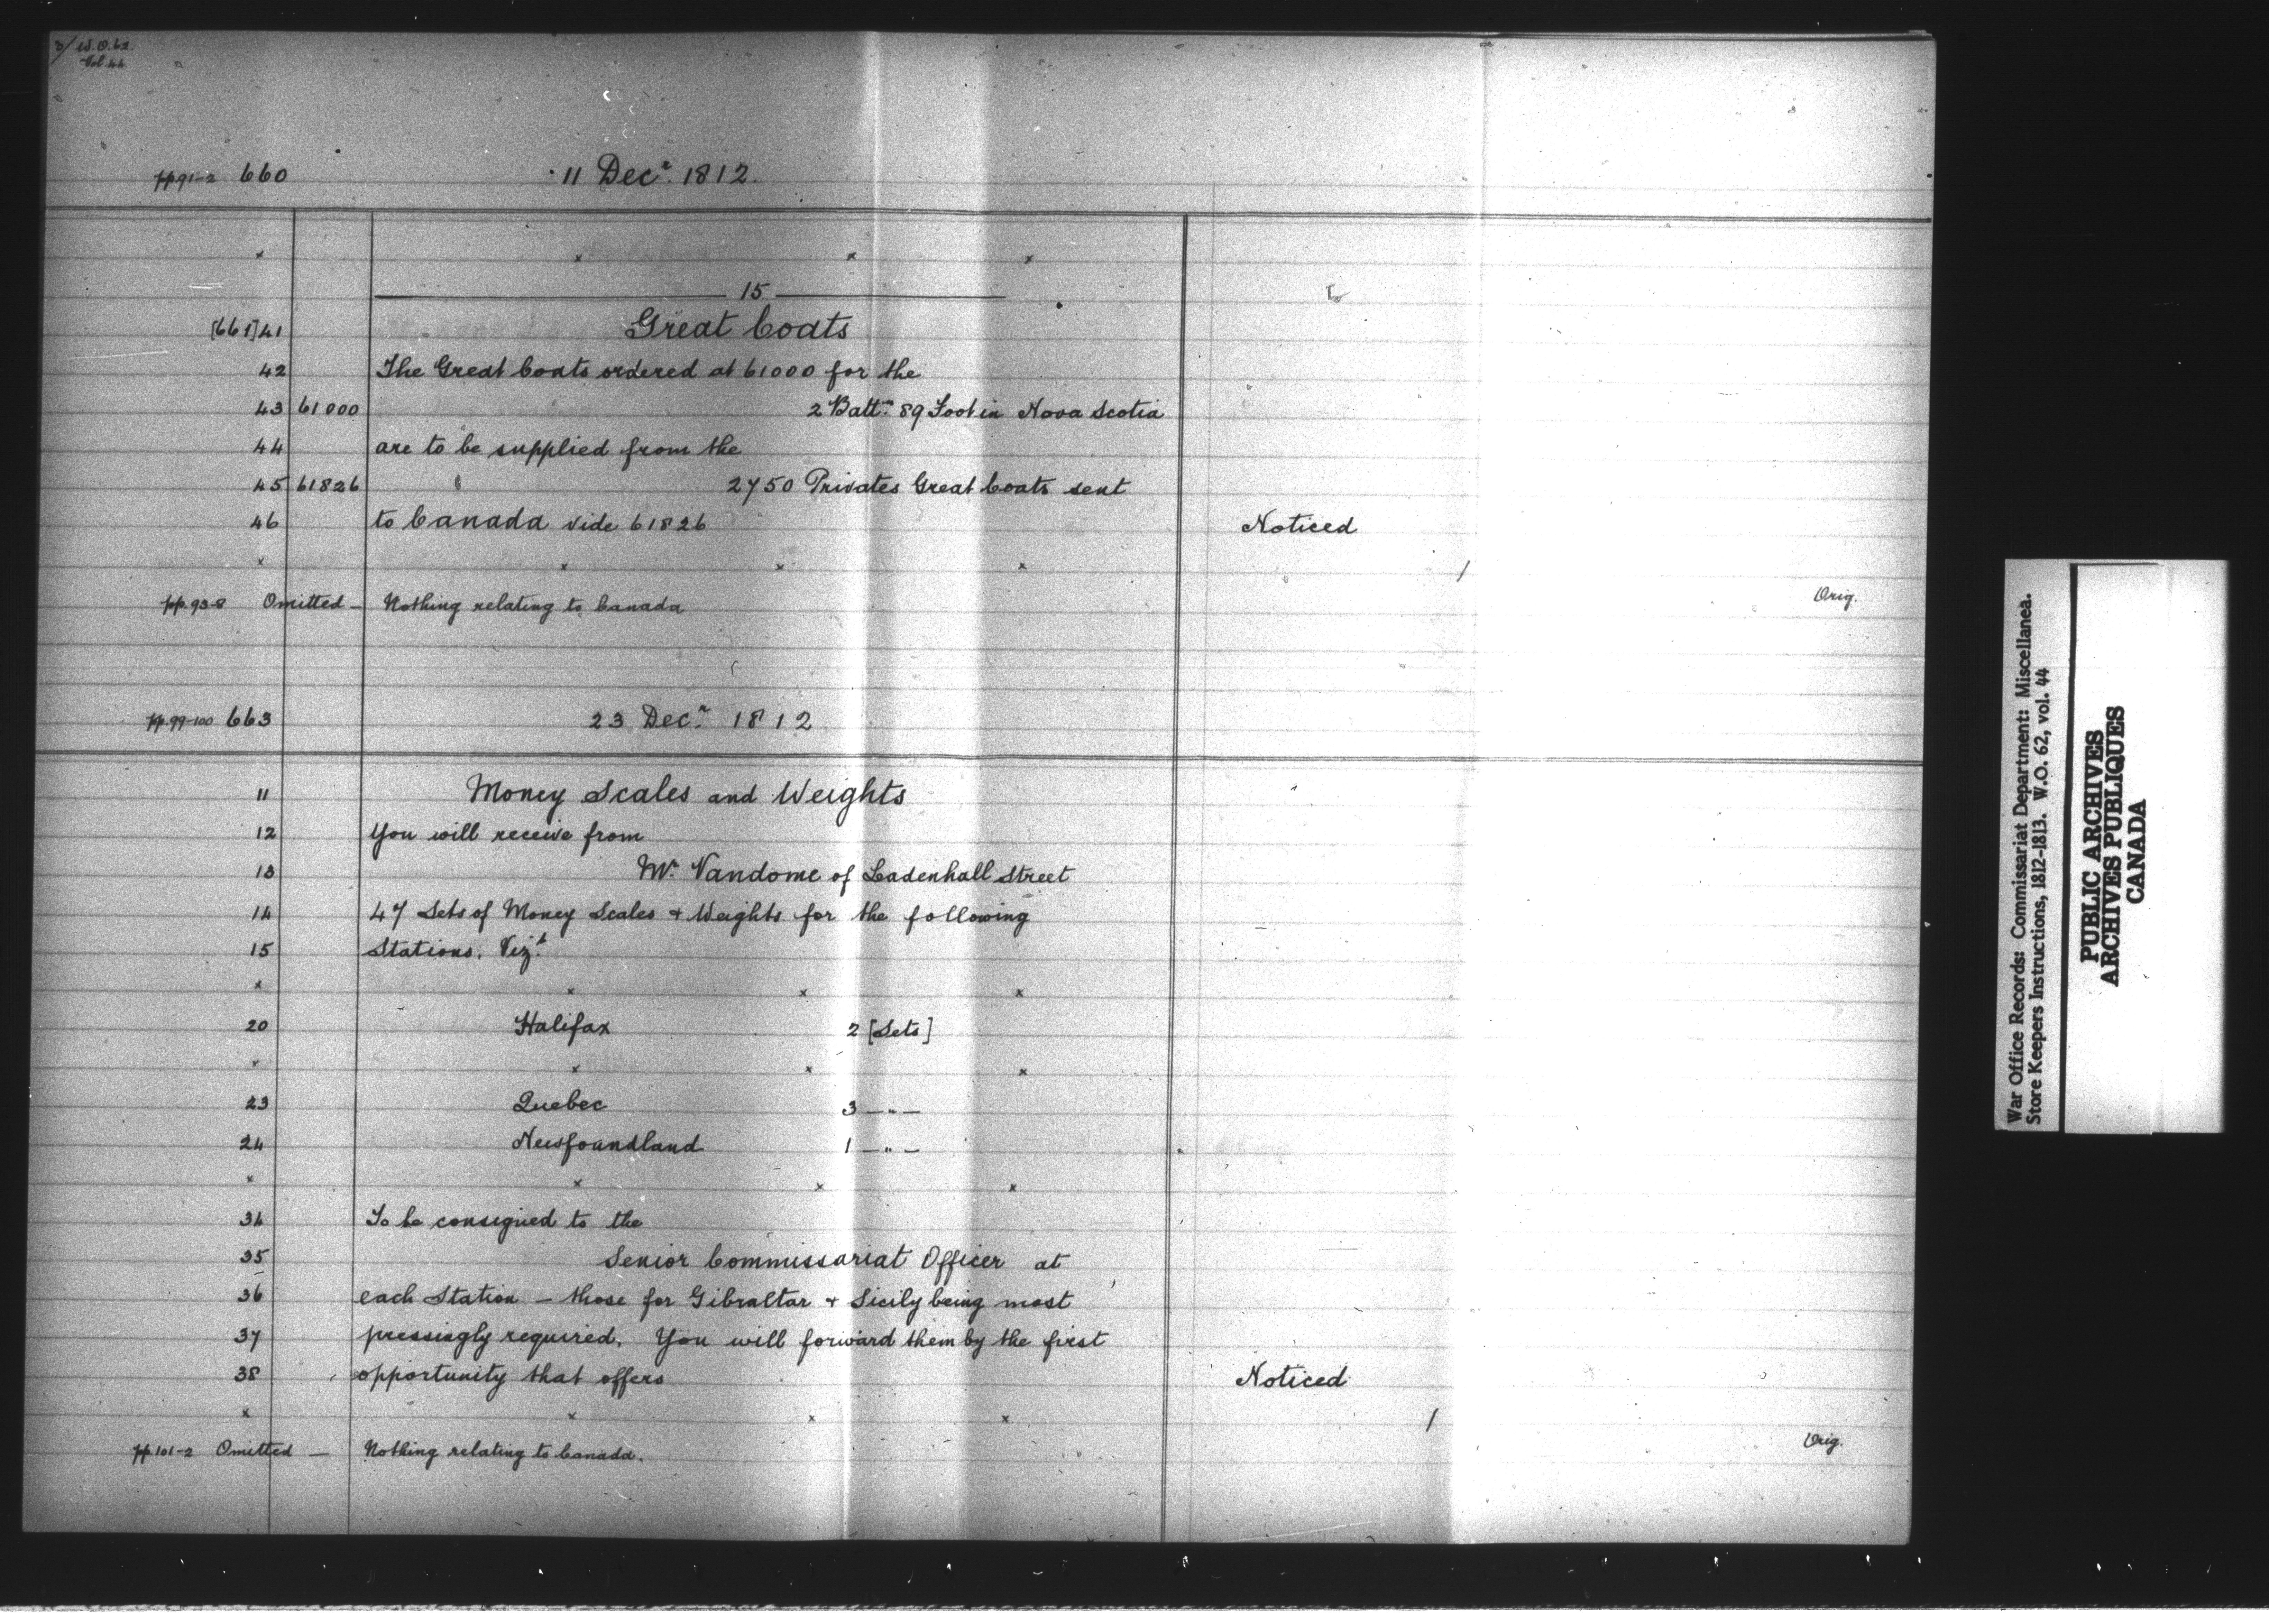 3/ W.O. 62.
Vol. 44
pp 91-2 660 11 Dec.r 1812.
x x x x
15
[661] 41 Great Coats
42 The Great Coats ordered at 61000 for the
43 61000 2 Batt.n 89 Foot in Nova Scotia
44 are to be supplied from the
45 61826 2750 Privates Great Coats sent
46 to Canada vide 61826 Noticed
x x x x /
pp. 93-8 Omitted — Nothing relating to Canada Orig.
pp. 99-100 663 23 Dec.r 1812
11 Money Scales and Weights
12 You will receive from
13 Mr. Vandome of Leadenhall Street
14 47 Sets of Money Scales + Weights for the following
15 Stations. Viz.t
x x x x
20 Halifax 2 [Sets]
x x x x
23 Quebec 3 — " —
24 Newfoundland 1 — " —
x x x x
34 To be consigned to the
35 Senior Commissariat Officer at
36 each Station — those for Gibraltar + Sicily being most
37 pressingly required. You will forward them by the first
38 opportunity that offers Noticed
x x x x /
pp. 101-2 Omitted — Nothing relating to Canada. Orig.
War Office Records: Commissariat Department: Miscellanea.
Store Keepers Instructions, 1812-1813. W.O. 62, vol. 44
PUBLIC ARCHIVES
ARCHIVES PUBLIQUES
CANADA